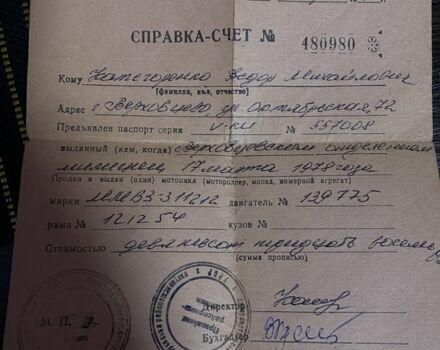 СПРАВКА-СЧЕТ № 480980
Кому Федор Михайлович
(фамилия, имя, отчество)
Адрес г. Верховцево, ул. Октябрьская, 72
Предъявлен паспорт серии V-КИ № 557008
выданный (кем, когда) Верховцевским отделением
милиции 17 марта 1978 года
Продан и выдан (один) мотоцикл (мотороллер, мопед, номерной агрегат)
марки ММВЗ-311212 двигатель № 139775
рама № 121254 кузов №
Стоимостью девяносто
(сумма прописью)
М. П.
Директор
Бухгалтер